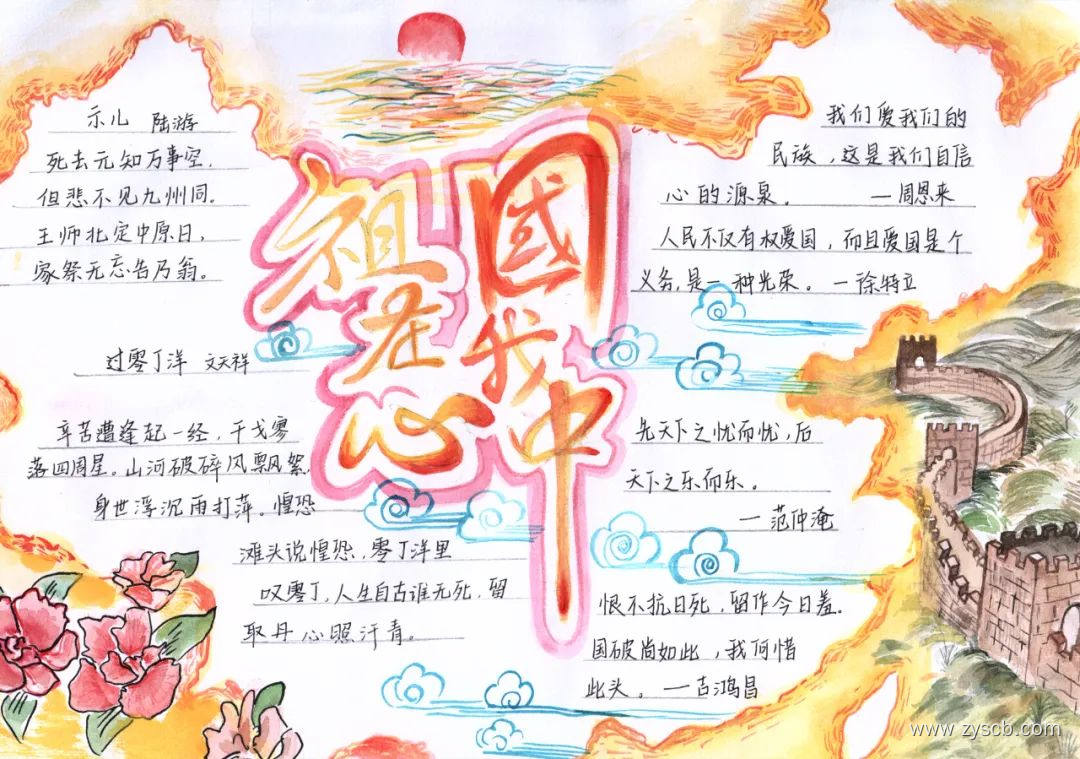 示儿 陆游
死去元知万事空,
但悲不见九州同。
王师北定中原日,
家祭无忘告乃翁。
过零丁洋 文天祥
辛苦遭逢起一经,干戈寥
落四周星。山河破碎风飘絮,
身世浮沉雨打萍。惶恐
滩头说惶恐,零丁洋里
叹零丁,人生自古谁无死,留
取丹心照汗青。
祖国
在我
心中
我们爱我们的
民族,这是我们自信
心的源泉。 —周恩来
人民不仅有权爱国,而且爱国是个
义务,是一种光荣。—徐特立
先天下之忧而忧,后
天下之乐而乐。
—范仲淹
恨不抗日死,留作今日羞。
国破尚如此,我何惜
此头。—吉鸿昌
www.zyscb.com